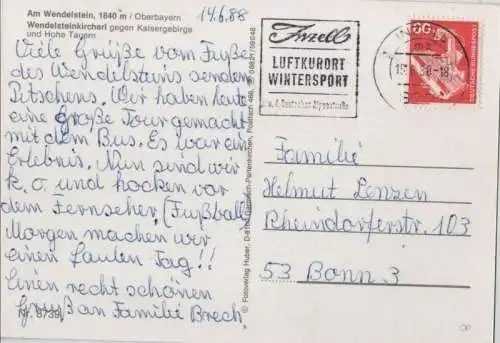 Am Wendelstein, 1840 m / Oberbayern
Wendelsteinkircherl gegen Kaisergebirge
und Hohe Tauern
14.6.88
Viele Grüße vom Fuße
des Wendelsteins senden
Pitschens. Wir haben heute
eine große Tour gemacht
mit dem Bus. Es war ein
Erlebnis. Nun sind wir
k.o. und hocken vor
dem Fernseher. (Fußball)
Morgen machen wir
einen faulen Tag!!
Einen recht schönen
Gruß an Familie Brech.
Nr. 8739
© Fotoverlag Huber, Garmisch-Partenkirchen, Postfach
Inzell
LUFTKURORT
WINTERSPORT
a. d. Deutschen Alpenstraße
DEUTSCHE BUNDESPOST
Familie
Helmut Lenzen
Rheindorferstr. 103
53 Bonn 3